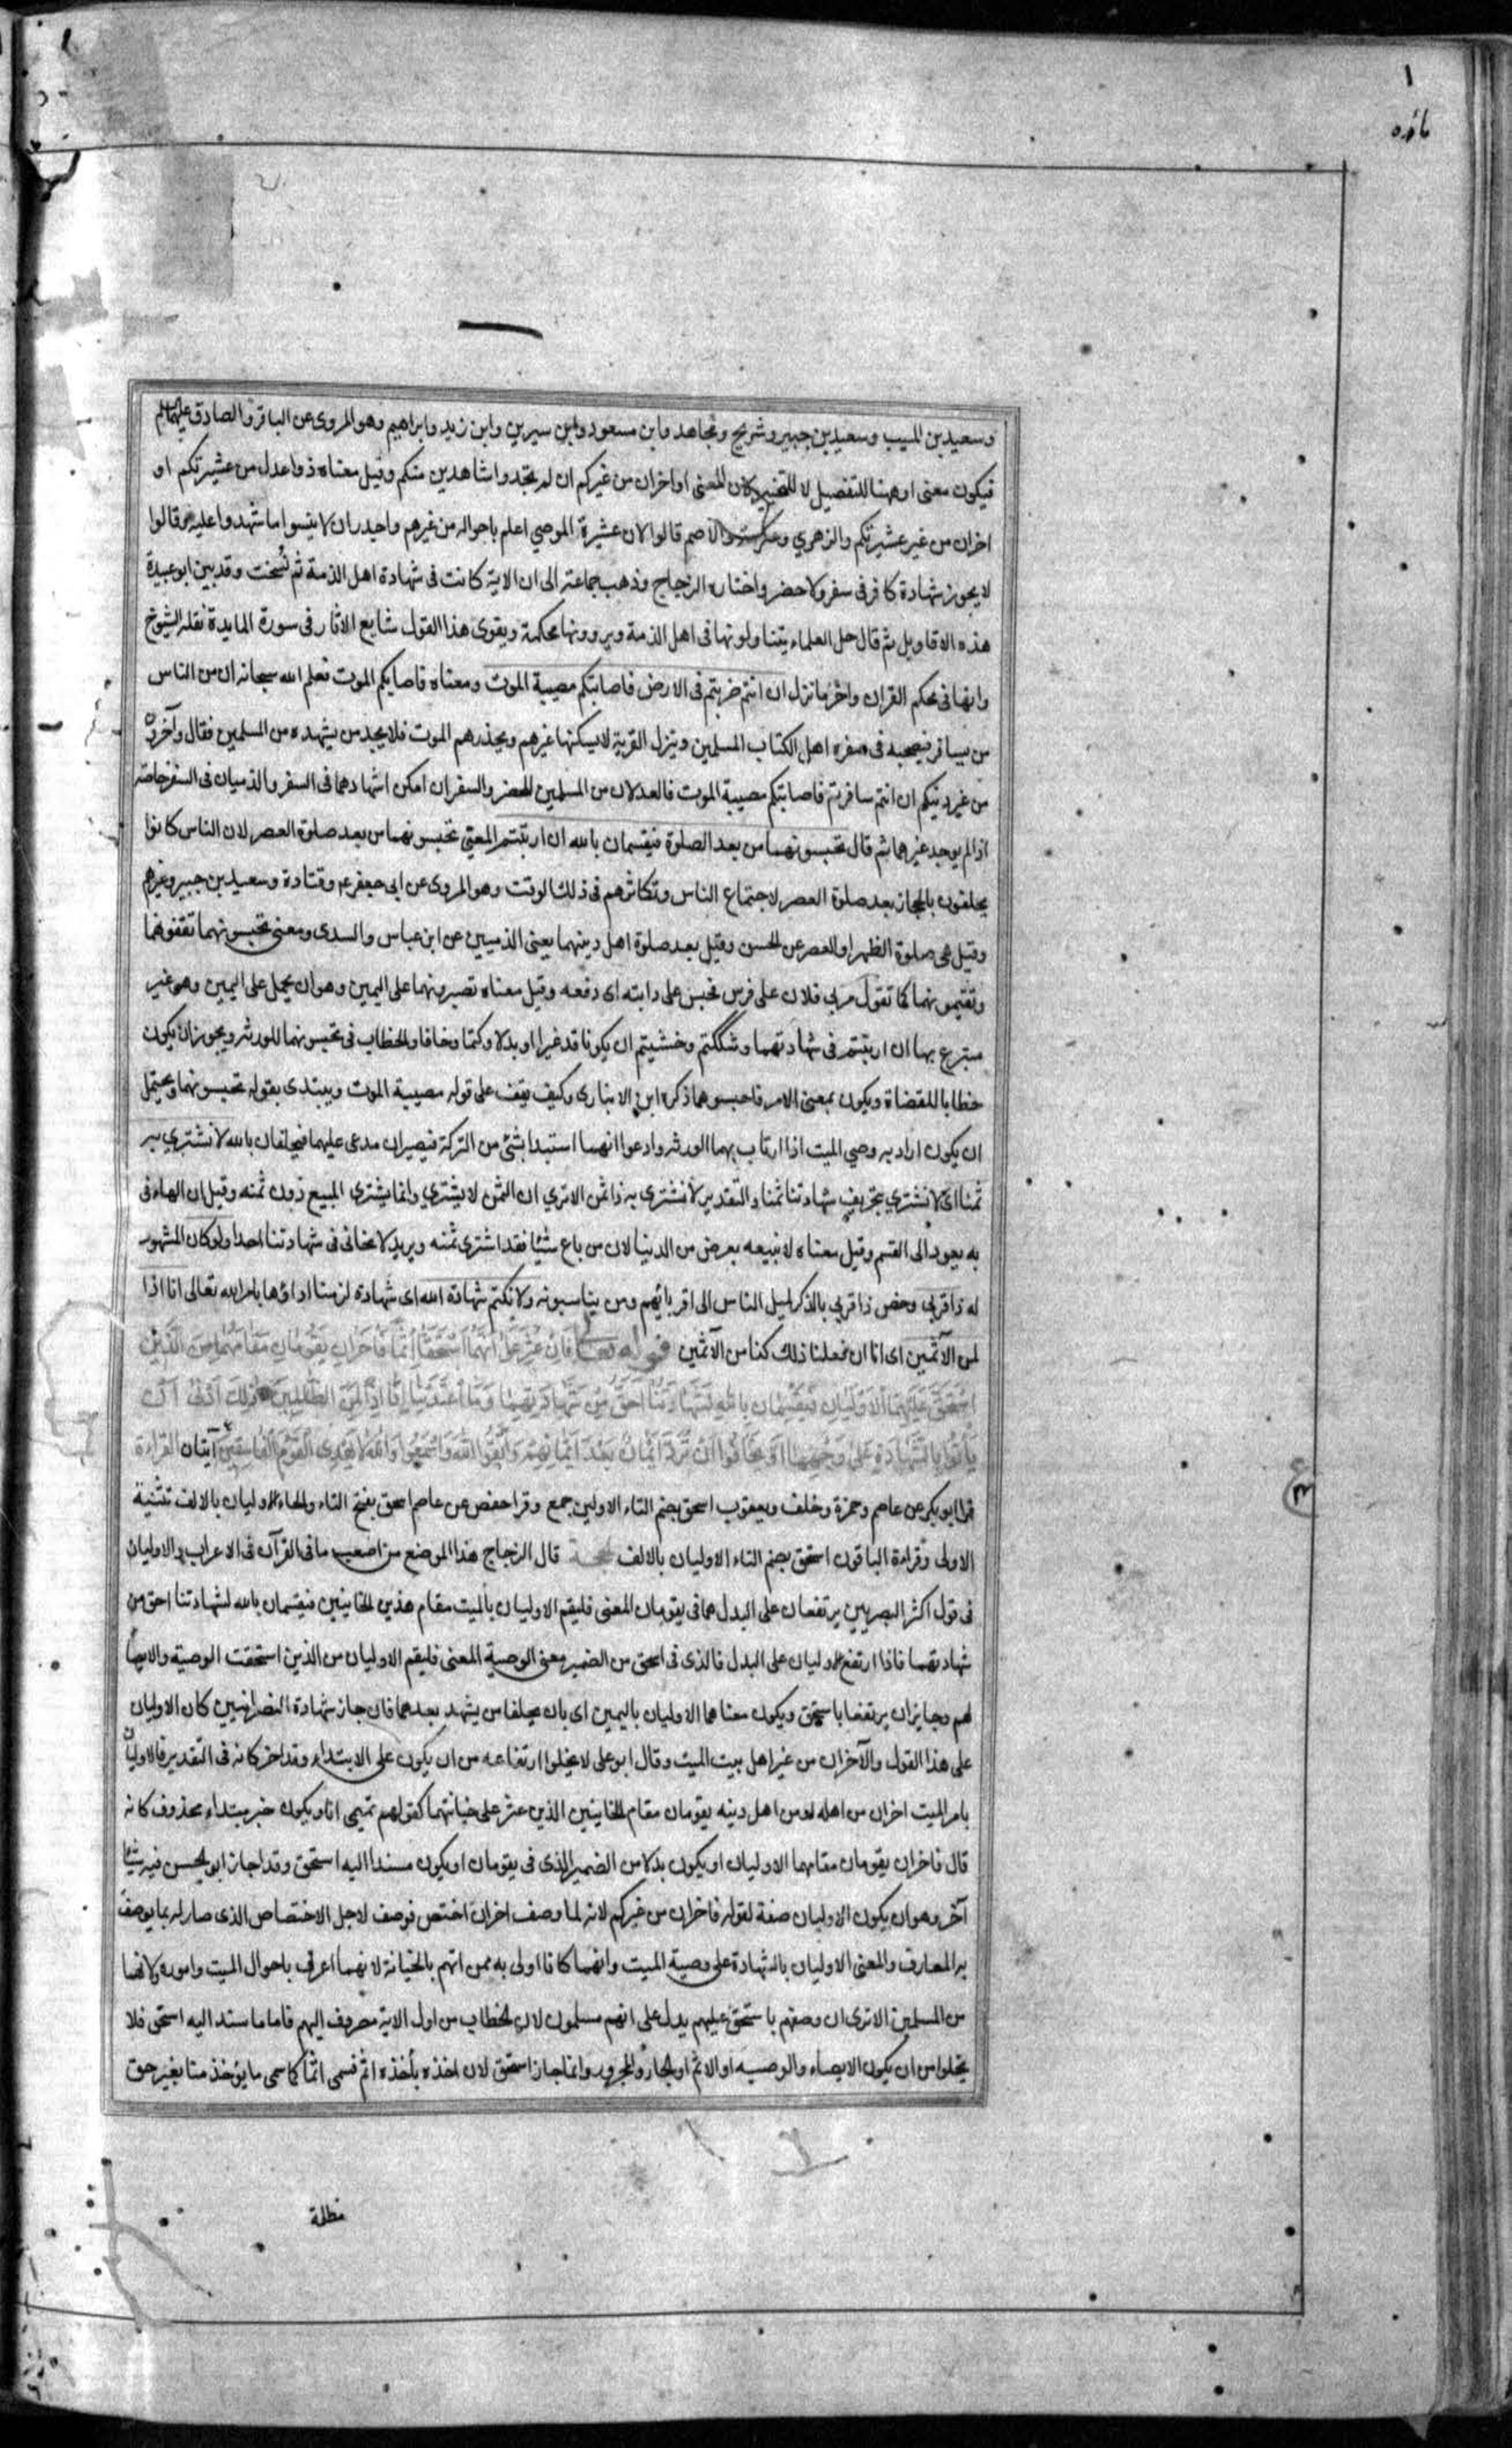 ١
مائده
وسعيد بن المسيب وسعيد بن جبير وشريح ومجاهد وابن مسعود وابن سيرين وابن زيد وابراهيم وهو المروى عن الباقر والصادق عليهما السلم
فيكون معنى او ههنا للتفصيل لا للتخيير كان المعنى او اخران من غيركم ان لم تجدوا شاهدين منكم وقيل معناه ذوا عدل من عشيرتكم او
اخران من غير عشيرتكم والزهري وعكرمة والاصم قالوا لان عشيرة الموصي اعلم باحواله من غيرهم واجدر ان لا ينسوا ما شهدوا عليه وقالوا
لا يجوز شهادة كافر فى سفر ولا حضر واختاره الزجاج وذهب جماعة الى ان الاية كانت فى شهادة اهل الذمة ثم نسخت وقد بين ابو عبيدة
هذه الاقاويل ثم قال جل العلماء يتناولونها فى اهل الذمة ويرونها محكمة ويقوى هذا القول شايع الاثار فى سورة المايدة نقله الشيوخ
وانها فى محكم القران واخر ما نزل ان انتم ضربتم فى الارض فاصابتكم مصيبة الموت ومعناه فاصابكم الموت فعلم الله سبحانه ان من الناس
من يسافر فيصحبه فى سفره اهل الكتاب المسلمين وينزل القرية لا يسكنها غيرهم ويحذرهم الموت فلا يجد من يشهده من المسلمين فقال وآخران
من غير دينكم ان انتم سافرتم فاصابتكم مصيبة الموت فالعدلان من المسلمين للحضر والسفر ان امكن اشهادهما فى السفر والذميان فى السفر خاصة
اذا لم يوجد غيرهما ثم قال تحبسونهما من بعد الصلوة فيقسمان بالله ان ارتبتم المعنى تحبسونهما من بعد صلوة العصر لان الناس كانوا
يحلفون بالحجاز بعد صلوة العصر لاجتماع الناس وتكاثرهم فى ذلك الوقت وهو المروى عن ابى جعفر ع وقتادة وسعيد بن جبير وغيرهم
وقيل هى صلوة الظهر او العصر عن الحسن وقيل بعد صلوة اهل دينهما يعنى الذميين عن ابن عباس والسدى ومعنى تحبسونهما تقفونهما
وتقيمونهما كما تقول مر بي فلان على فرس فحبس على دابته اى دفعه وقيل معناه تصبرونهما على اليمين وهو ان يحمل على اليمين وهو غير
متبرع بها ان ارتبتم فى شهادتهما وشككتم وخشيتم ان يكونا قد غيرا او بدلا وكتما وخانا والخطاب فى تحبسونهما للورثة ويجوز ان يكون
خطابا للقضاة ويكون بمعنى الامر فاحبسوهما ذكره ابن الانبارى وكيف يقف على قوله مصيبة الموت ويبتدى بقوله تحبسونهما ويحتمل
ان يكون اراد به وصي الميت اذا ارتاب بهما الورثة وادعوا انهما استبدا بشئ من التركة فيصيران مدعى عليهما فيحلفان بالله لا نشتري به
ثمنا اى لا نشتري بتحريف شهادتنا ثمنا والتقدير لا نشترى به ذا ثمن الا ترى ان الثمن لا يشتري وانما يشترى المبيع دون ثمنه وقيل ان الهاء فى
به يعود الى القسم وقيل معناه لا نبيعه بعرض من الدنيا لان من باع شيئا فقد اشترى ثمنه ويريد لا نحابى فى شهادتنا احدا ولو كان المشهود
له ذا قربى وخص ذا قربى بالذكر لميل الناس الى اقربائهم ومن يناسبونه ولا نكتم شهادة الله اى شهادة لزمنا اداؤها بامر الله تعالى انا اذا
لمن الآثمين اى انا ان فعلنا ذلك كنا من الآثمين قوله تعالى فَاِنْ عُثِرَ عَلىٰ اَنَّهُمَا اسْتَحَقَّا اِثْمًا فَآخَرَانِ يَقُومَانِ مَقَامَهُمَا مِنَ الَّذِينَ
اسْتَحَقَّ عَلَيْهِمُ الْاَوْلَيَانِ فَيُقْسِمَانِ بِاللهِ لَشَهَادَتُنَا اَحَقُّ مِنْ شَهَادَتِهِمَا وَمَا اعْتَدَيْنَا اِنَّا اِذًا لَمِنَ الظَّالِمِينَ ذٰلِكَ اَدْنٰى اَنْ
يَأْتُوا بِالشَّهَادَةِ عَلىٰ وَجْهِهَا اَوْ يَخَافُوا اَنْ تُرَدَّ اَيْمَانٌ بَعْدَ اَيْمَانِهِمْ وَاتَّقُوا اللهَ وَاسْمَعُوا وَاللهُ لَا يَهْدِى الْقَوْمَ الْفَاسِقِينَ آيتان القراءة
قرا ابو بكر عن عاصم وحمزة وخلف ويعقوب استحق بضم التاء الاولين جمع وقرا حفص عن عاصم استحق بفتح التاء والحاء الاوليان بالالف تثنية
الاولى وقراءة الباقون استحق بضم التاء الاوليان بالالف الحجة قال الزجاج هذا الموضع من اصعب ما فى القرآن فى الاعراب والاوليان
فى قول اكثر البصريين يرتفعان على البدل مما فى يقومان المعنى فليقم الاوليان بالميت مقام هذين الخاينين فيقسمان بالله لشهادتنا احق من
شهادتهما فاذا ارتفع الاوليان على البدل فالذى فى استحق من الضمير معنى الوصية المعنى فليقم الاوليان من الذين استحقت الوصية والايصاء
لهم وجايز ان يرتفعا باستحق ويكون معناهما الاوليان باليمين اى بان يحلفا من يشهد بعدهما فان جاز شهادة النصرانيين كان الاوليان
على هذا القول والآخران من غير اهل بيت الميت وقال ابو على لا يخلوا ارتفاعه من ان يكون على الابتداء وقد اخر كانه فى التقدير فالاوليان
بامر الميت اخران من اهله او من اهل دينه يقومان مقام الخاينين الذين عثر على خيانتهما كقولهم تميمى انا ويكون خبر مبتداء محذوف كانه
قال فاخران يقومان مقامهما الاوليان او يكون بدلا من الضمير الذى فى يقومان او يكون مسندا اليه استحق وقد اجاز ابو الحسن فيه شيئا
آخر وهو ان يكون الاوليان صفة لقوله فاخران من غيركم لانه لما وصف اخران اختص فوصف لاجل الاختصاص الذى صار له بما يوصف
به المعارف والمعنى الاوليان بالشهادة على وصية الميت وانهما كانا اولى به ممن اتهم بالخيانة لانهما اعرف باحوال الميت واموره ولانهما
من المسلمين الا ترى ان وصفهم باستحق عليهم يدل على انهم مسلمون لان الخطاب من اول الاية مصروف اليهم فاما ما ستد اليه استحق فلا
يخلوا من ان يكون الايصاء والوصيه او الاثم او الجار والمجرور وانما جاز استحق لان اخذه يأخذه اثم فسمى اثما كما سمى ما يؤخذ منا بغير حق
مظلمة